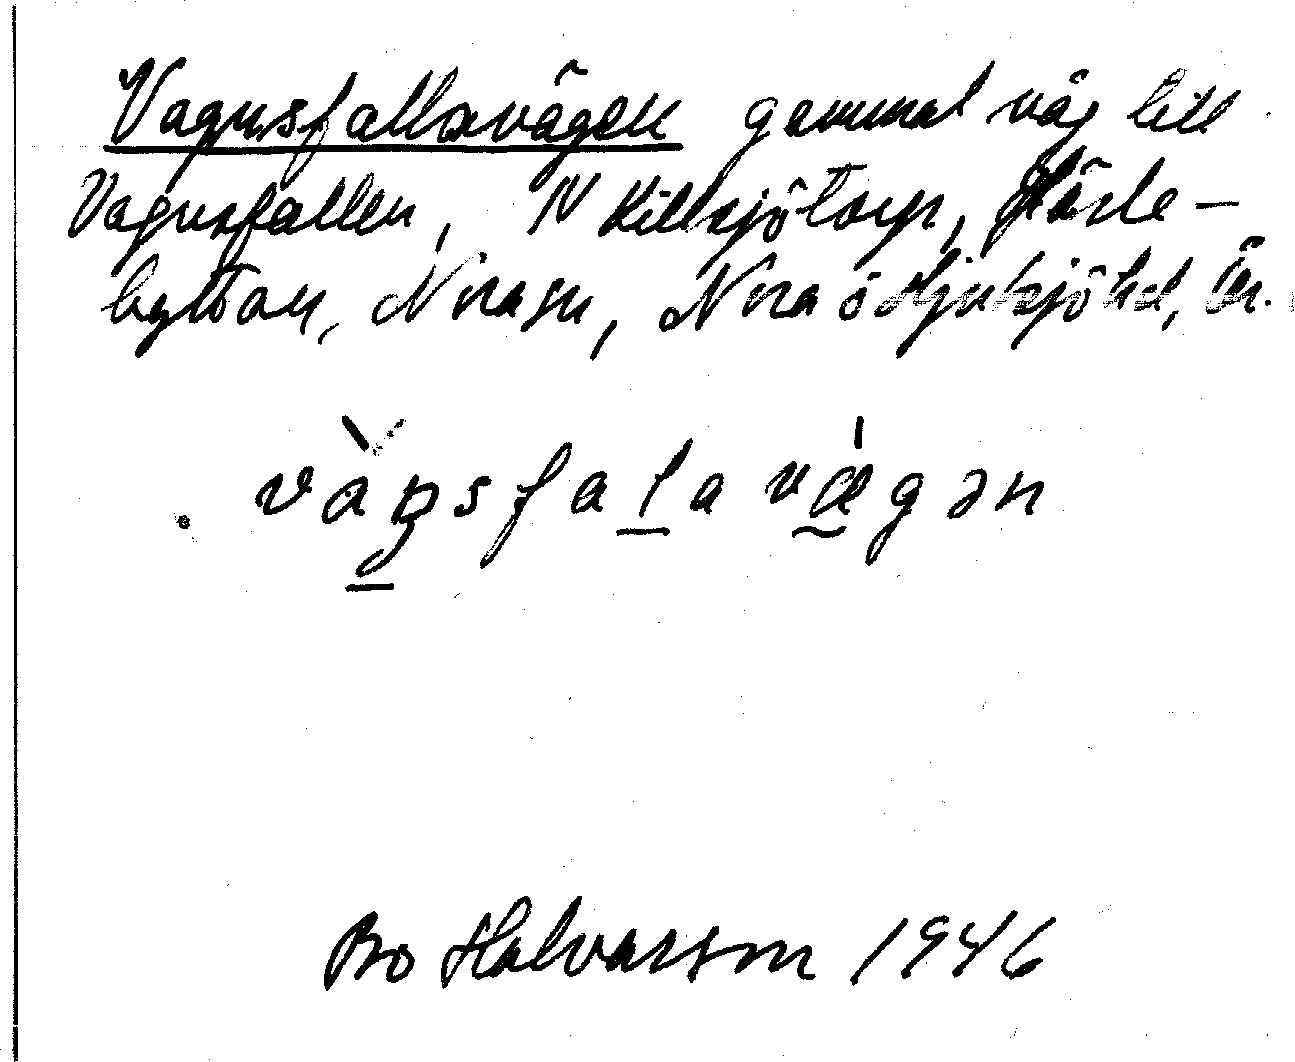 Vagnsfallavägen gammal väg till
Vagnsfallen, N Killsjötorp, Järle-
hyttan, Nora sn, Nora o Hjulsjö hd, Ör.
vàgsfalavægən
Bo Halvarsson 1946